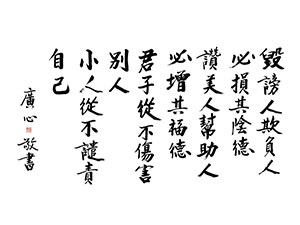 毀謗人欺負人
必損其陰德
讚美人幫助人
必增其福德
君子從不傷害
別人
小人從不譴責
自己
廣心
敬書